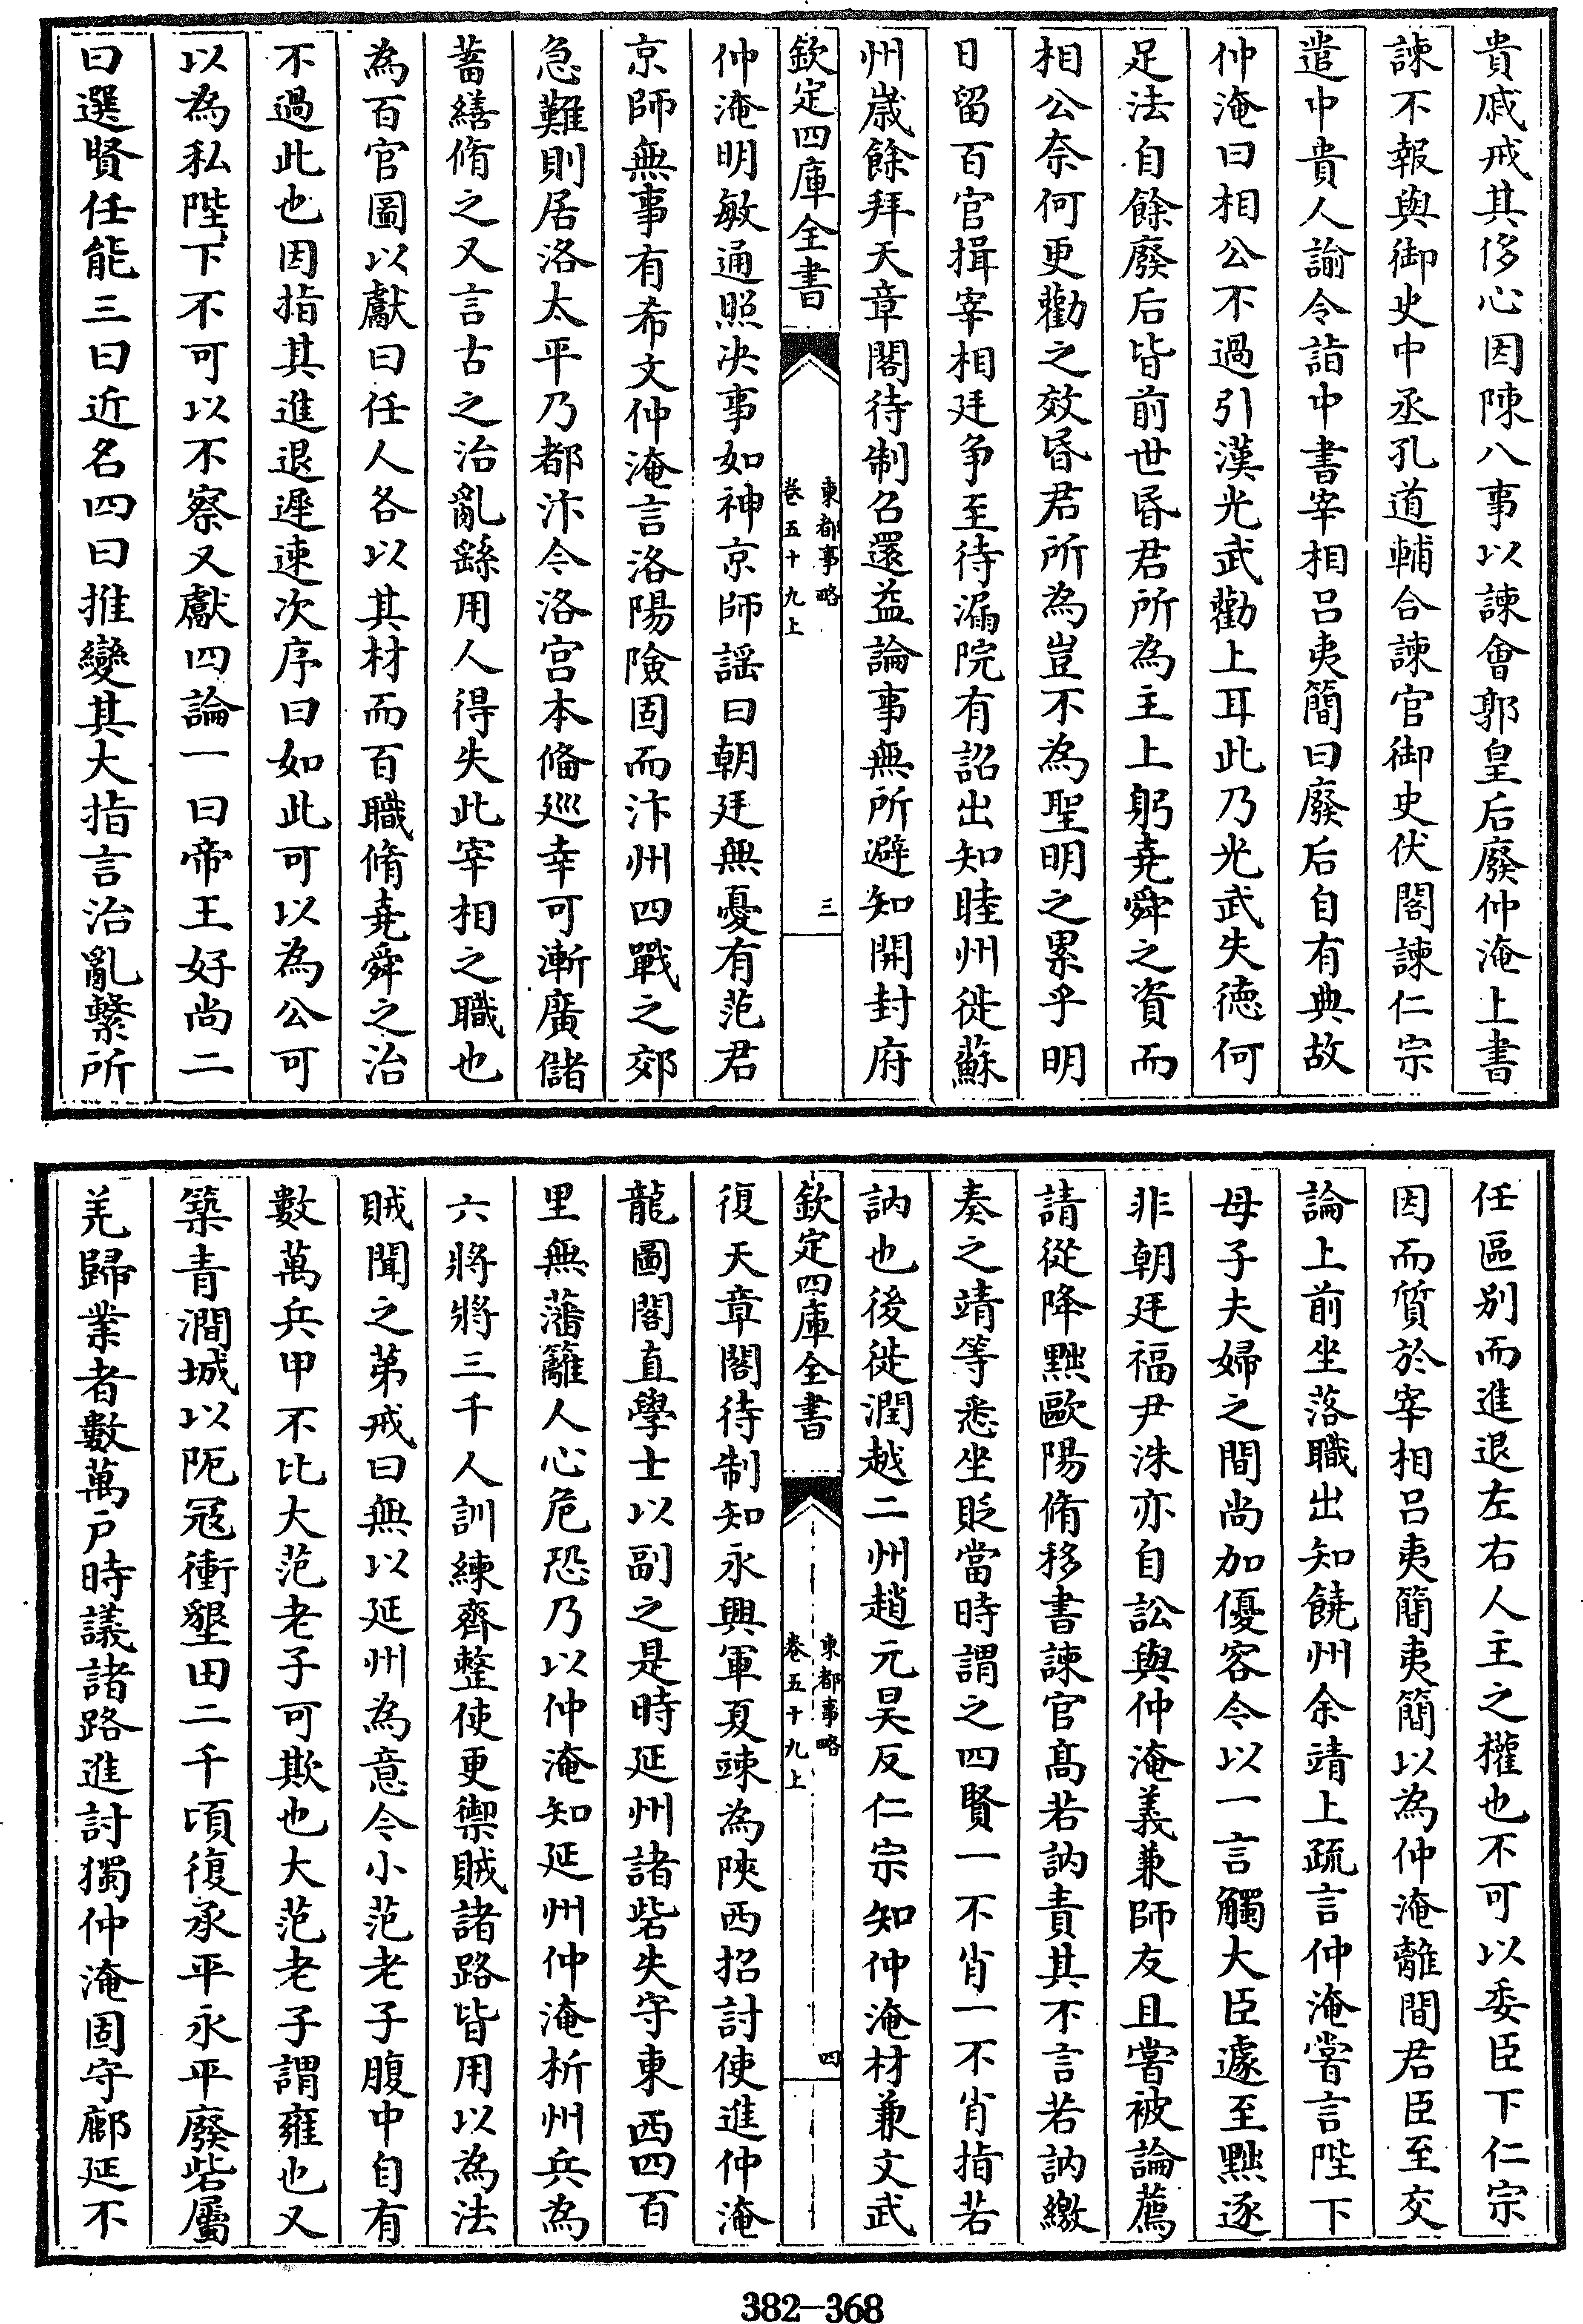 貴戚戒其侈心因陳八事以諫會郭皇后廢仲淹上書
諫不報與御史中丞孔道輔合諫官御史伏閣諫仁宗
遣中貴人諭令詣中書宰相呂夷簡曰廢后自有典故
仲淹曰相公不過引漢光武勸上耳此乃光武失德何
足法自餘廢后皆前世昏君所為主上躬堯舜之資而
相公奈何更勸之效昏君所為豈不為聖明之累乎明
日留百官揖宰相廷争至待漏院有詔出知睦州徙蘇
州歲餘拜天章閣待制召還益論事無所避知開封府
欽定四庫全書
東都事略
卷五十九上
三
仲淹明敏通照决事如神京師謡曰朝廷無憂有范君
京師無事有希文仲淹言洛陽險固而汴州四戰之郊
急難則居洛太平乃都汴今洛宫本備廵幸可漸廣儲
蓄繕脩之又言古之治亂繇用人得失此宰相之職也
為百官圖以獻曰任人各以其材而百職脩堯舜之治
不過此也因指其進退遲速次序曰如此可以為公可
以為私陛下不可以不察又獻四論一曰帝王好尚二
曰選賢任能三曰近名四曰推變其大指言治亂繫所
任區别而進退左右人主之權也不可以委臣下仁宗
因而質於宰相呂夷簡夷簡以為仲淹離間君臣至交
論上前坐落職出知饒州余靖上疏言仲淹嘗言陛下
母子夫婦之間尚加優容今以一言觸大臣遽至黜逐
非朝廷福尹洙亦自訟與仲淹義兼師友且嘗被論薦
請從降黜歐陽脩移書諫官髙若訥責其不言若訥繳
奏之靖等悉坐貶當時謂之四賢一不肖一不肖指若
訥也後徙潤越二州趙元昊反仁宗知仲淹材兼文武
欽定四庫全書
東都事略
卷五十九上
四
復天章閣待制知永興軍夏竦為陜西招討使進仲淹
龍圖閣直學士以副之是時延州諸砦失守東西四百
里無藩籬人心危恐乃以仲淹知延州仲淹析州兵為
六將將三千人訓練齊整使更禦賊諸路皆用以為法
賊聞之第戒曰無以延州為意今小范老子腹中自有
數萬兵甲不比大范老子可欺也大范老子謂雍也又
築青澗城以阨冦衝墾田二千頃復承平永平廢砦屬
羌歸業者數萬戸時議諸路進討獨仲淹固守鄜延不
382-368